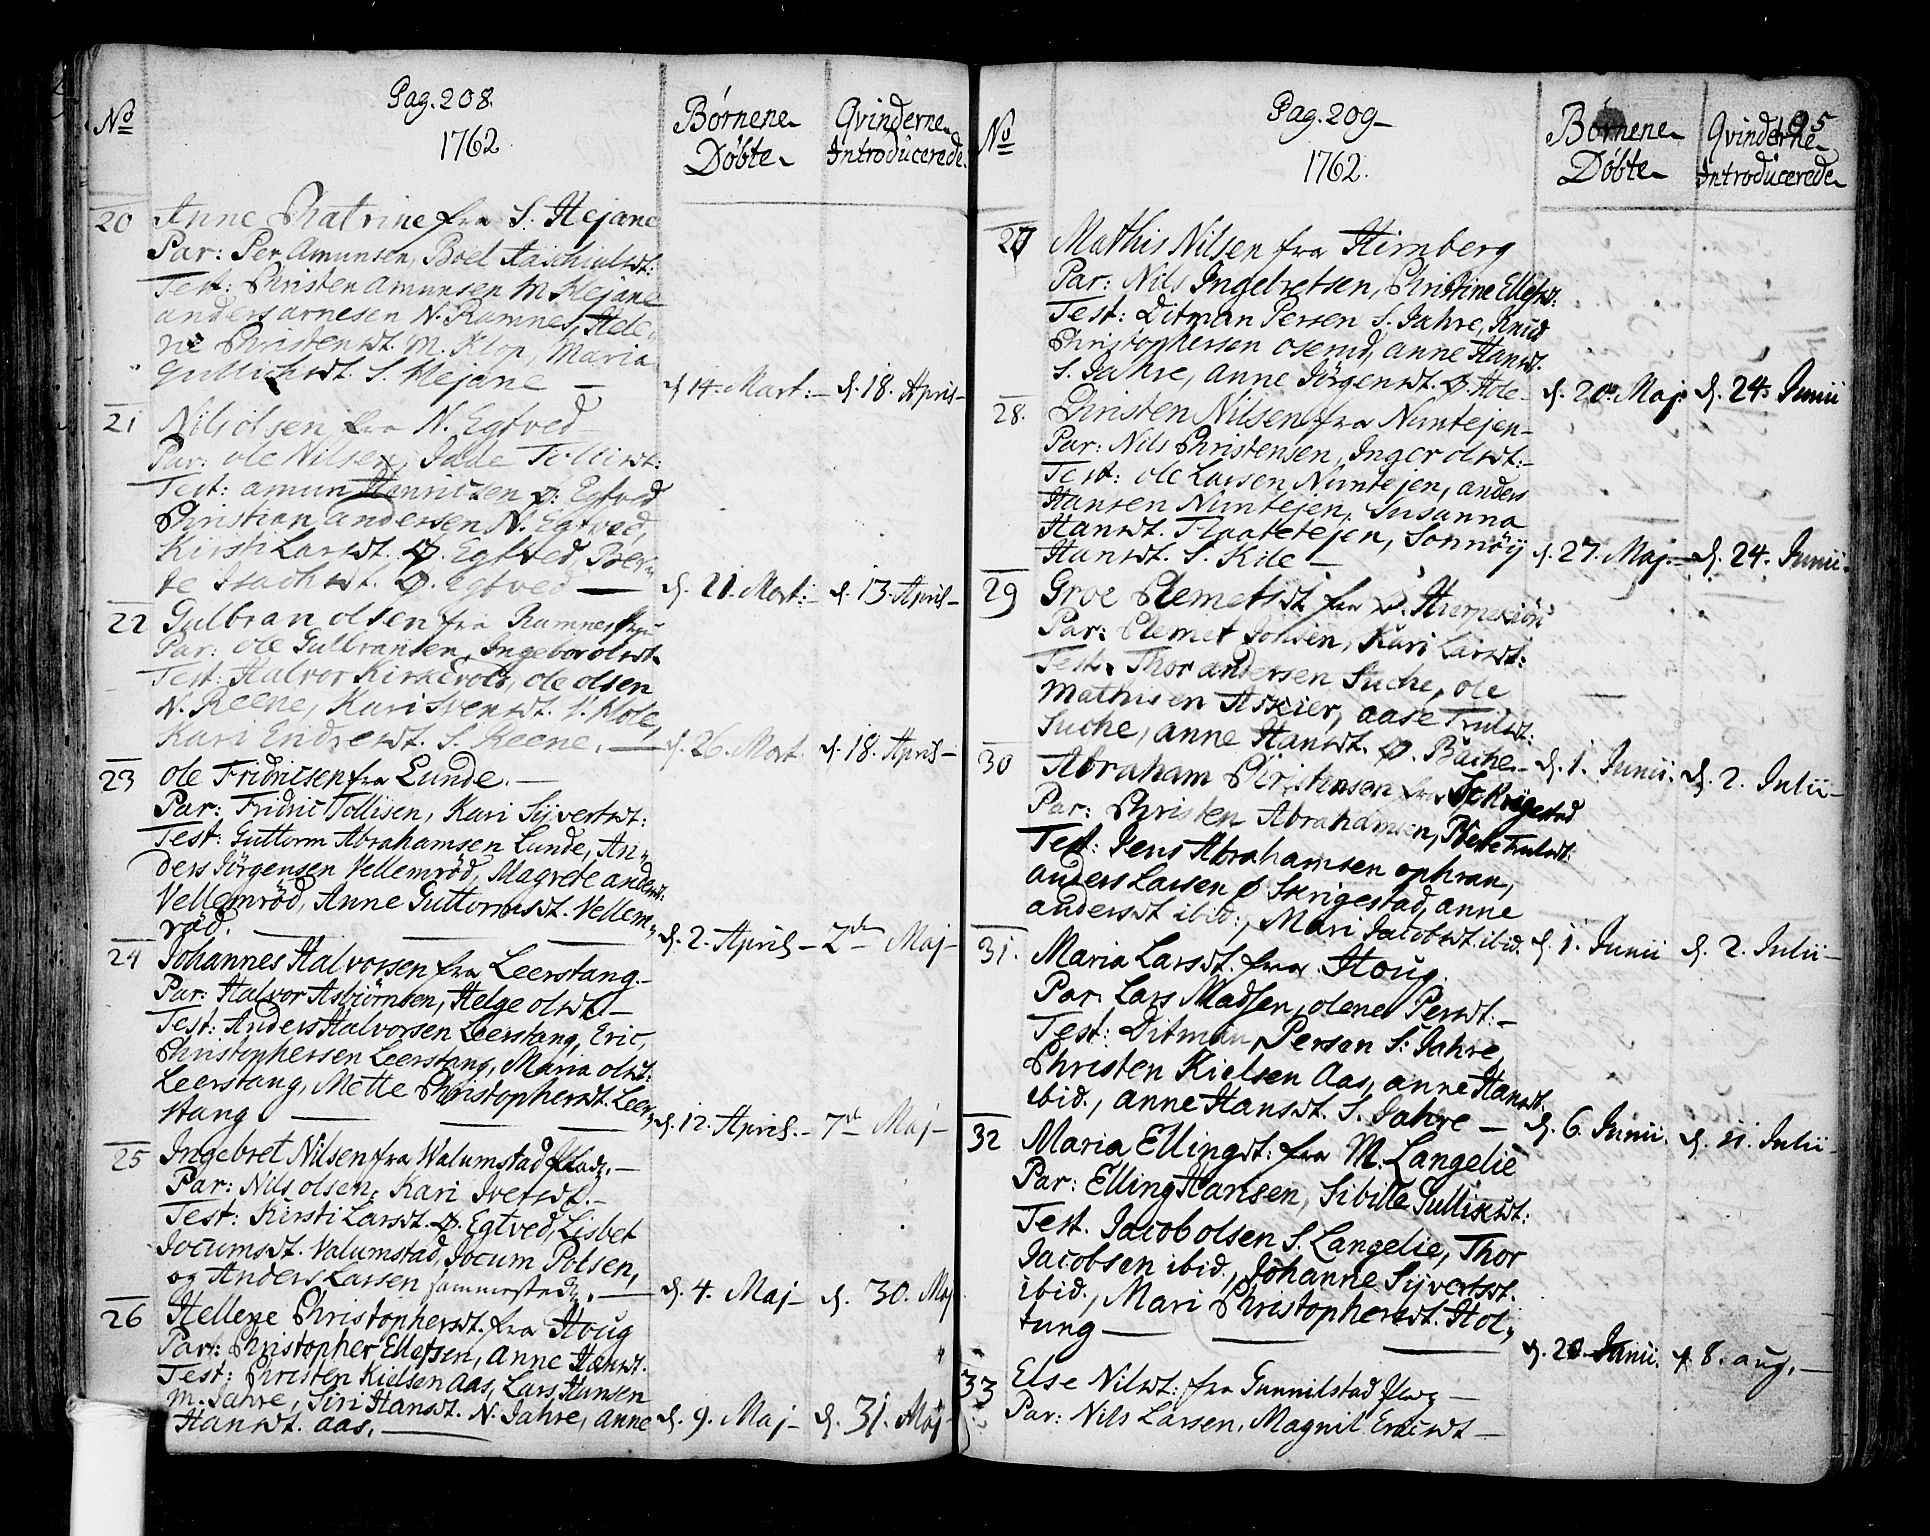 Pag. 208.
1762
No
Børnene
Døbte
Qvinderne
Introducerede
20 Anne Chatrine fra S. Hejane
Par: Per Amunsen, Boel Haschiulsdt:
Test: Christen Amunsen M. Hejane
anders arnesen N. Ramnes, Hele-
ne Christensdt. M. Klop, Maria
Gullichsdt. S. Hejane —
d. 14. Mart: — d. 18. April —
21 Nils olsen fra N. Egtved
Par: ole Nilsen, Tollisdt:
Test: amun Hanricsen Ø: Egtved
Christian andersen N. Egtved,
Kirsti Larsdt. Ø. Egtved, Ber-
te Isachsdt. Ø. Egtved —
d. 21. Mart: d. 13. April —
22 Gulbran olsen fra Ramnes
Par: ole Gulbransen, Ingebor olsdt.
Test: Halvor Kirkevold, ole olsen
N. Reene, Kari Svensdt. V. Hole,
Kari Endresdt. S. Reene. —
d. 26. Mart. d. 18. April —
23 ole Fridricsen fra Lunde. —
Par: Fridric Tollisen, Kari Sÿvertsdt:
Test: Guttorm Abrahamsen Lunde, An-
ders Jörgensen Vellemröd, Magrete andersdt:
Vellemröd, Anne Guttormsdt. Vellem-
röd. —
d. 2. April — 2den Maj —
24 Johannes Halvorsen fra Leerstang. —
Par: Halvor Asbiörnsen, Helge olsdt —
Test: Anders Halvorsen Leerstang, Eric
Christophersen Leerstang, Maria olsdt:
Leerstang, Mette Christophersdt. Leer-
stang —
d. 12. April. — 7de Maj —
25 Ingebret Nilsen fra Walumstad —
Par: Nils olsen, Kari Iversdt. —
Test: Kirsti Larsdt. Ø. Egtved, Lisbet
Jocumsdt. Valumstad, Jocum Polsen,
og Anders Larsen —
d. 4. Maj — d. 30. Maj
26 Hellene Christophersdt. fra Houg
Par: Christopher Ellefsen, anne Hansdt.
Test: Christen Kielsen Aas, Lars Hansen
M. Jahre, Siri Hansdt. N. Jahre, anne
Hansdt. aas. —
d. 9. Maj — d. 31. Maj
Pag. 209 —
1762.
No
Børnene
Døbte
195
Qvinderne
Introducerede
27 Mathis Nilsen fra Himberg
Par: Nils Ingebretsen, Christine Ellefsdt:
Test: Ditman Persen S. Jahre, Knud
Christophersen oserud, anne Hansdt.
S. Jahre, Anne Jörgensdt. Ø. Hole —
d. 20. Maj. d. 24. Junii
28. Christen Nilsen fra Nuntejen —
Par: Nils Christensen, Inger olsdt: —
Test: ole Larsen Nuntejen, anders
Hansen Nuntejen, Susanna
Hansdt. Flaatetejen, Sonnöÿ
Hansdt. S. Kile —
d. 27. Maj. — d. 24. Junii.
29 Groe Clemetsdt. fra Ø.
Par: Clemet Johsen, Kari Larsdt:
Test. Thor andersen Suche, ole
Mathisen Askier, aase Trulsdt:
Suche, anne Hansdt. Ø. Bache —
d. 1. Junii. d. 2. Julii —
30 Abraham Christensen fra
Par: Christen Abrahamsen, Trulsdt.
Test: Jens Abrahamsen ophran,
anders Larsen Ø Skrigestad, anne
andersdt ibid:, Mari Jacobsdt. ibid.
d. 1. Junii d. 2. Julii —
31. Maria Larsdt. fra Houg.
Par: Lars Madsen, olene Persdt. —
Test: Ditman Persen S. Jahre,
Christen Kielsen Aas, anne Hansdt.
ibid., anne Hansdt. S. Jahre —
d. 6. Junii. d. 11. Julii —
32 Maria Ellingsdt: fra M. Langelie
Par: Elling Hansen, Sibille Gullixsdt:
Test. Jacob olsen S. Langelie, Thor
Jacobsen ibid., Johanne Sÿvertsdt.
ibid., Mari Christophersdt. Hol-
tung —
d. 20 Junii. d. 8. aug. —
33 Else Nilsdt: fra Gunnilstad —
Par: Nils Larsen, Magnil Ericsdt —